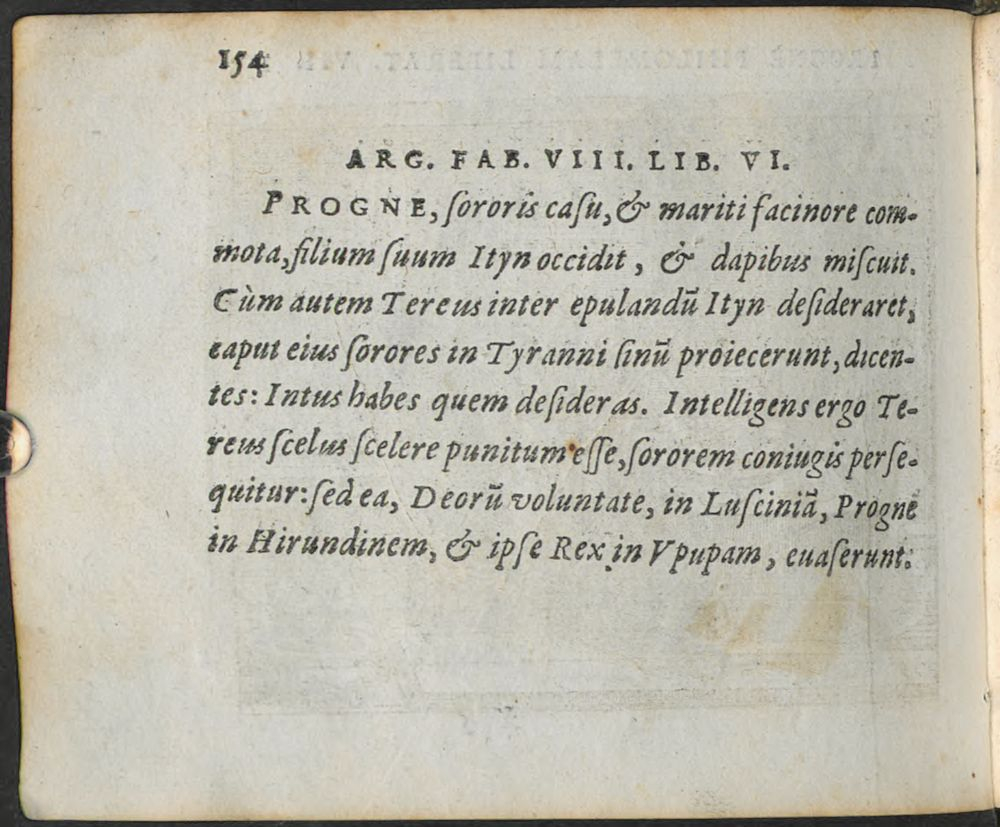 154
ARG. FAB. VIII. LIB. VI.
PROGNE, ſororis caſu, & mariti facinore com-
mota, filium ſuum Ityn occidit, & dapibus miſcuit.
Cùm autem Tereus inter epulandū Ityn deſideraret,
caput eius ſorores in Tyranni ſinū proiecerunt, dicen-
tes: Intus habes quem deſideras. Intelligens ergo Te-
reus ſcelus ſcelere punitum eſſe, ſororem coniugis perſe-
quitur: ſed ea, Deorū voluntate, in Luſciniā, Progne
in Hirundinem, & ipſe Rex in Vpupam, euaſerunt.